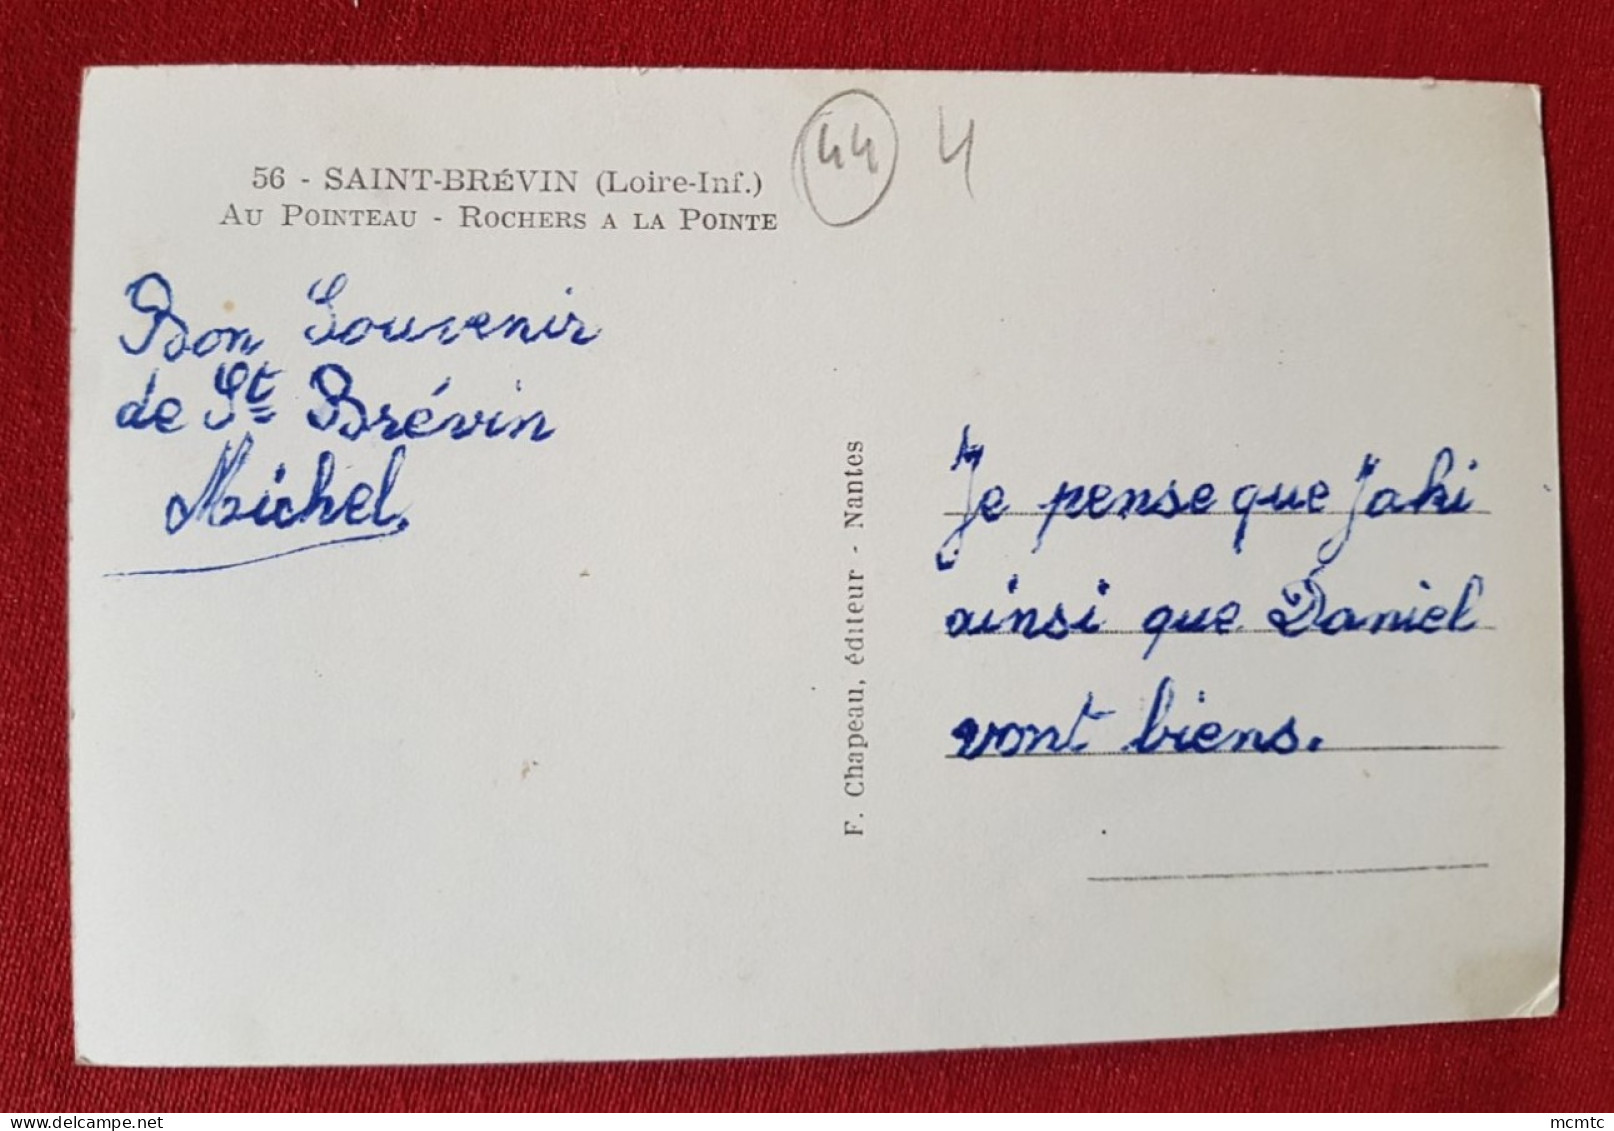 56 - SAINT-BRÉVIN (Loire-Inf.)
AU POINTEAU - ROCHERS A LA POINTE
44 4
Bon Souvenir
de St Brévin
Michel.
F. Chapeau, éditeur - Nantes
Je pense que Jaki
ainsi que Daniel
vont biens.
mcmtc